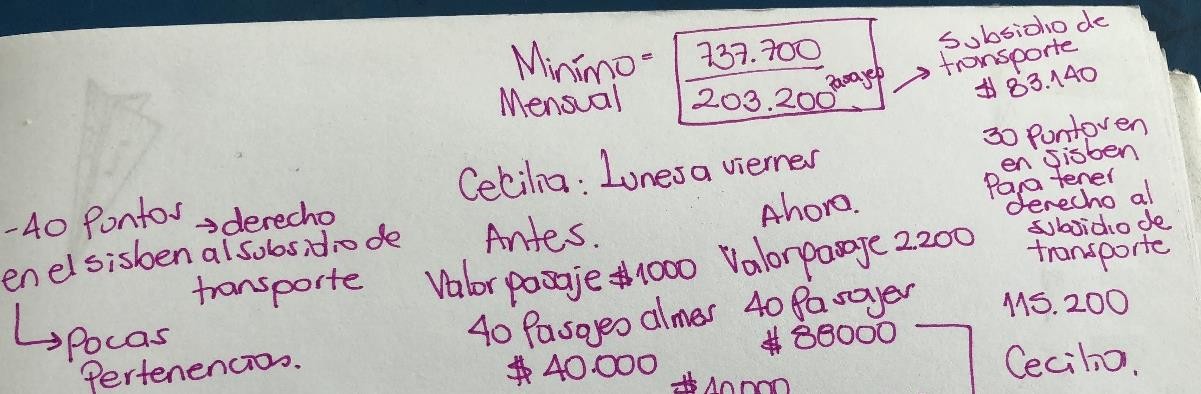 Minímo =
Mensual
737.700
203.200 Pasajes
Subsidio de
transporte
$ 83.140
30 Puntos en
en Sisben
Para tener
derecho al
subsidio de
transporte
115.200
Cecilia.
Cecilia: Lunes a viernes
-40 Puntos → derecho
en el sisben al subsidio de
transporte
↳ Pocas
Pertenencias.
Antes.
Valor pasaje $1000
40 Pasajes al mes
$ 40.000
Ahora.
Valor pasaje 2.200
40 Pasajes
$ 88000
$40.000